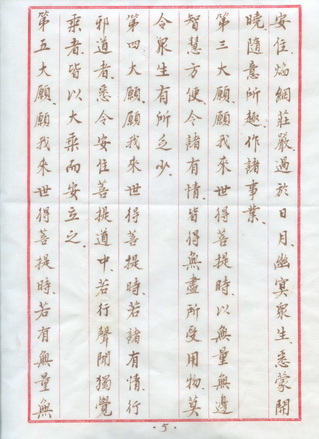 安住焰網莊嚴過於日月幽冥眾生悉蒙開
曉隨意所趣作諸事業
第三大願願我來世得菩提時以無量無邊
智慧方便令諸有情皆得無盡所受用物莫
令眾生有所乏少
第四大願願我來世得菩提時若諸有情行
邪道者悉令安住菩提道中若行聲聞獨覺
乘者皆以大乘而安立之
第五大願願我來世得菩提時若有無量無
·5·